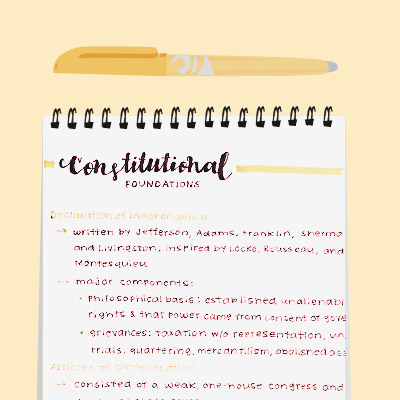 Constitutional
FOUNDATIONS
Declaration of Independence
→ written by Jefferson, Adams, Franklin, Sherma
and Livingston; inspired by Locke, Rousseau, and
Montesquieu
→ major components:
• philosophical basis: established unalienabl
rights & that power came from consent of gove
• grievances: taxation w/o representation, un
trials, quartering, mercantilism, abolished ass
Articles of Confederation
→ consisted of a weak, one-house congress and